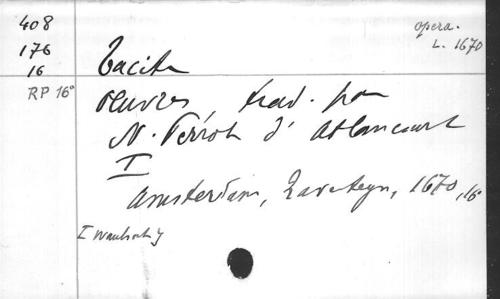 408
176
16
RP 16°
opera.
L. 1670
Tacite
Oeuvres, trad. par
N. Perrot d' Ablancourt
I
Amsterdam, 1670, 16°
I